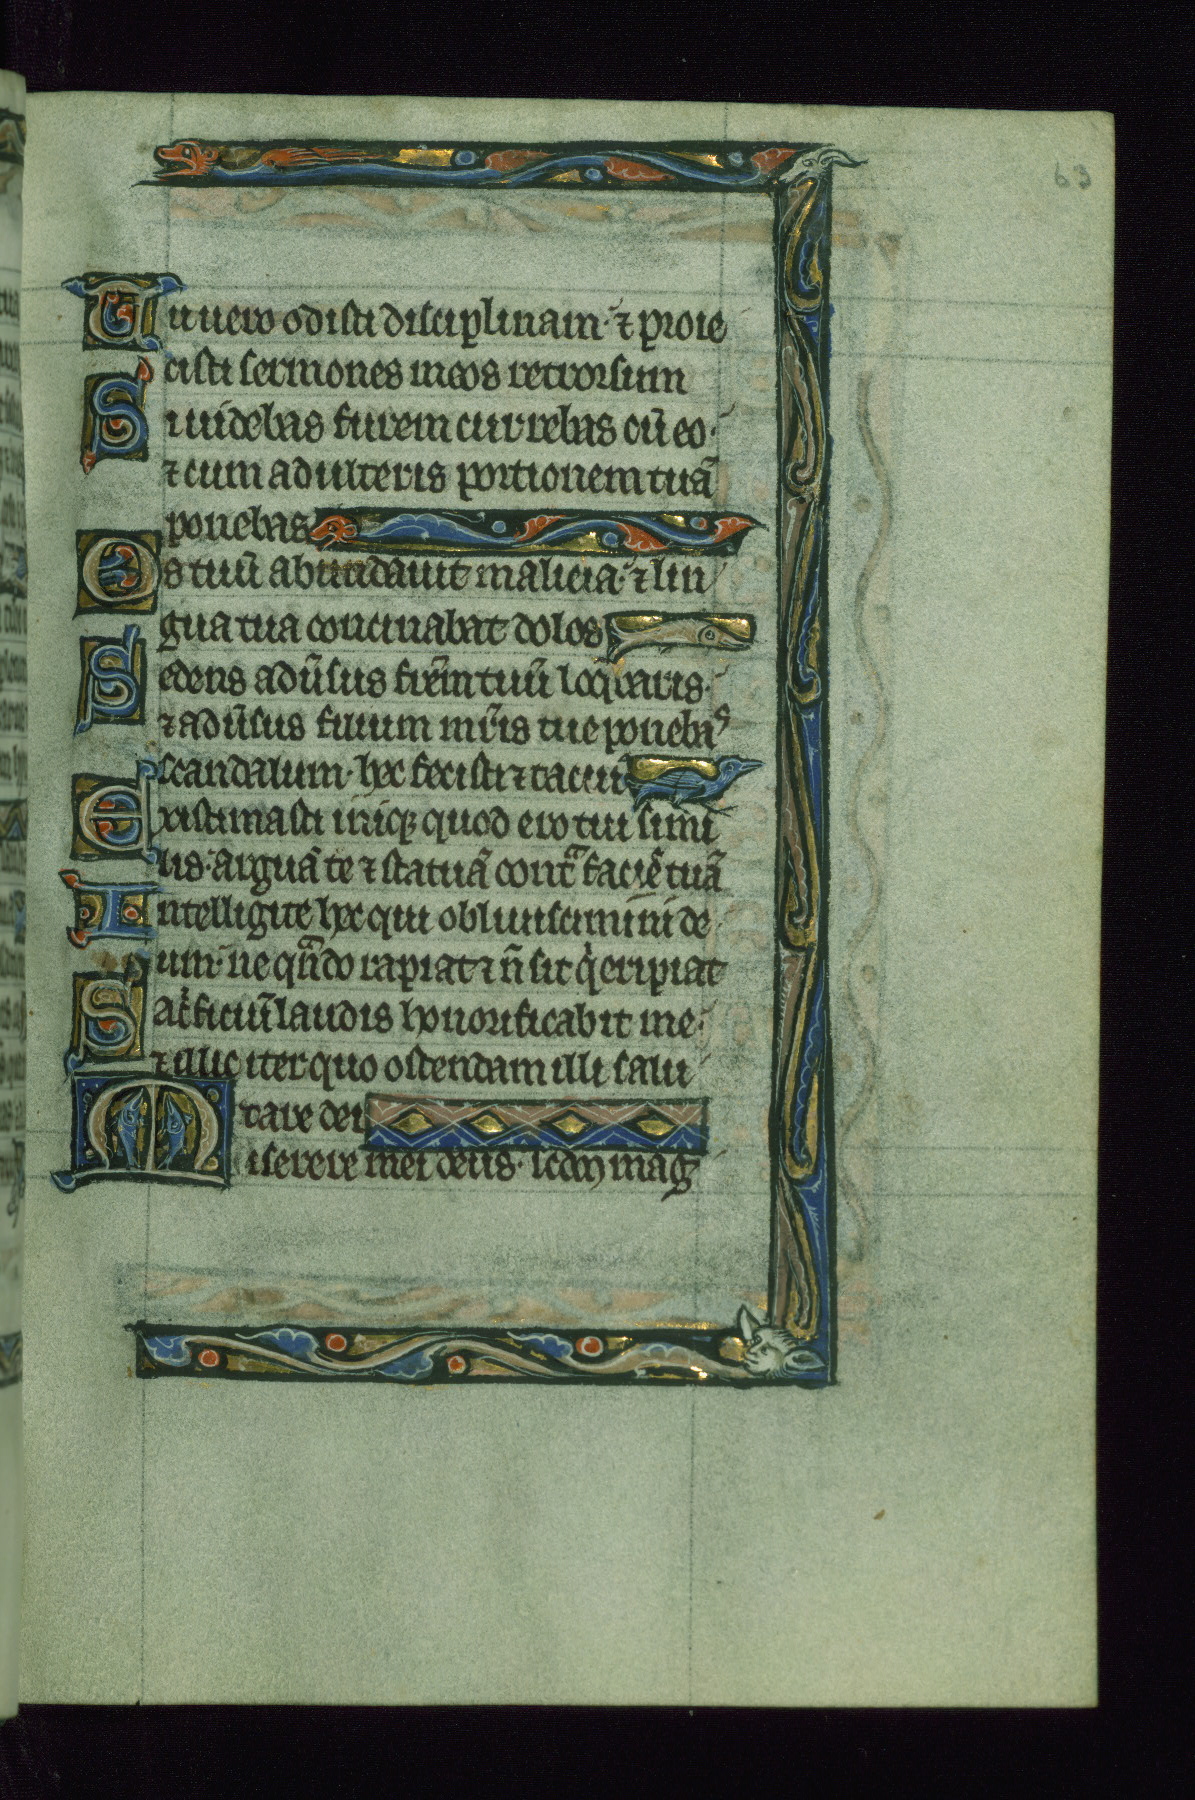 63
Tu uero odisti disciplinam· ⁊ proie
cisti sermones meos retrorsum
Si uidebas furem currebas cū eo·
⁊ cum adulteris portionem tuā
ponebas
Os tuū abundauit malicia· ⁊ lin
gua tua concinabat dolos
Sedens adūsus frēm tuū loquaris·
⁊ adūsus filium mr̄is tue ponebas
scandalum· hec fecisti ⁊ tacui
Existimasti iniq; quod ero tui simi
lis· arguā te ⁊ statuā cont̃ faciē tuā
Intelligite hec qui obliuiscimini de
um· ne qñdo rapiat ⁊ ñ sit q̇ eripiat
Sac̃ficiū laudis honorificabit me·
⁊ illic iter quo ostendam illi salu
tare dei
Miserere mei deus· scdm mag